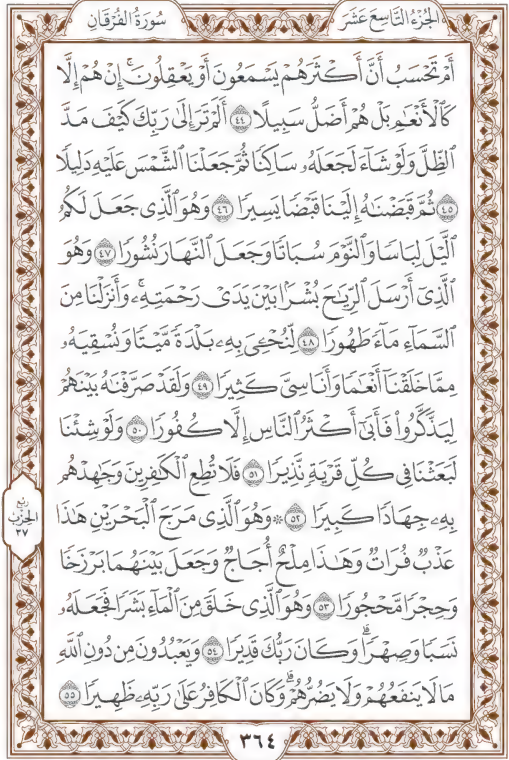 الجُزْءُ التَّاسِعَ عَشَرَ
سُورَةُ الفُرْقَانِ
أَمْ تَحْسَبُ أَنَّ أَكْثَرَهُمْ يَسْمَعُونَ أَوْ يَعْقِلُونَۚ إِنْ هُمْ إِلَّا
كَٱلْأَنْعَٰمِ بَلْ هُمْ أَضَلُّ سَبِيلًا ٤٤ أَلَمْ تَرَ إِلَىٰ رَبِّكَ كَيْفَ مَدَّ
ٱلظِّلَّ وَلَوْ شَآءَ لَجَعَلَهُۥ سَاكِنًا ثُمَّ جَعَلْنَا ٱلشَّمْسَ عَلَيْهِ دَلِيلًا
٤٥ ثُمَّ قَبَضْنَٰهُ إِلَيْنَا قَبْضًا يَسِيرًا ٤٦ وَهُوَ ٱلَّذِى جَعَلَ لَكُمُ
ٱلَّيْلَ لِبَاسًا وَٱلنَّوْمَ سُبَاتًا وَجَعَلَ ٱلنَّهَارَ نُشُورًا ٤٧ وَهُوَ
ٱلَّذِىٓ أَرْسَلَ ٱلرِّيَٰحَ بُشْرًۢا بَيْنَ يَدَىْ رَحْمَتِهِۦۚ وَأَنزَلْنَا مِنَ
ٱلسَّمَآءِ مَآءً طَهُورًا ٤٨ لِّنُحْۦِىَ بِهِۦ بَلْدَةً مَّيْتًا وَنُسْقِيَهُۥ
مِمَّا خَلَقْنَآ أَنْعَٰمًا وَأَنَاسِىَّ كَثِيرًا ٤٩ وَلَقَدْ صَرَّفْنَٰهُ بَيْنَهُمْ
لِيَذَّكَّرُوا۟ فَأَبَىٰٓ أَكْثَرُ ٱلنَّاسِ إِلَّا كُفُورًا ٥٠ وَلَوْ شِئْنَا
لَبَعَثْنَا فِى كُلِّ قَرْيَةٍ نَّذِيرًا ٥١ فَلَا تُطِعِ ٱلْكَٰفِرِينَ وَجَٰهِدْهُم
بِهِۦ جِهَادًا كَبِيرًا ٥٢ ۞ وَهُوَ ٱلَّذِى مَرَجَ ٱلْبَحْرَيْنِ هَٰذَا
عَذْبٌ فُرَاتٌ وَهَٰذَا مِلْحٌ أُجَاجٌ وَجَعَلَ بَيْنَهُمَا بَرْزَخًا
وَحِجْرًا مَّحْجُورًا ٥٣ وَهُوَ ٱلَّذِى خَلَقَ مِنَ ٱلْمَآءِ بَشَرًا فَجَعَلَهُۥ
نَسَبًا وَصِهْرًاۗ وَكَانَ رَبُّكَ قَدِيرًا ٥٤ وَيَعْبُدُونَ مِن دُونِ ٱللَّهِ
مَا لَا يَنفَعُهُمْ وَلَا يَضُرُّهُمْۗ وَكَانَ ٱلْكَافِرُ عَلَىٰ رَبِّهِۦ ظَهِيرًا ٥٥
رُبع
الحِزْب
٣٧
٣٦٤